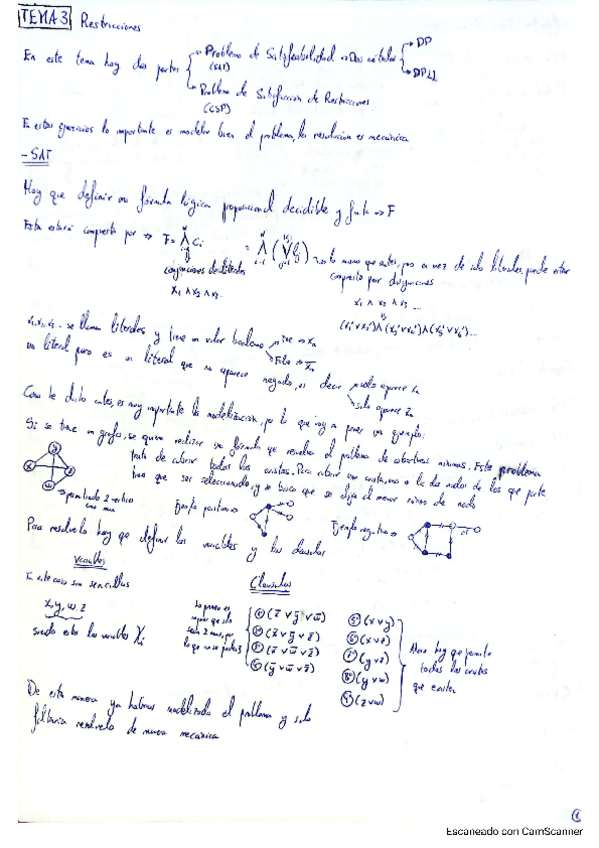 TEMA 3 Restricciones
En este tema hay dos partes
Problema de Satisfabilidad → Dos métodos
DP
DPLL
(SAT)
Problema de Satisfacción de Restricciones
(CSP)
En estos ejercicios lo importante es modelar bien el problema, la resolución es mecánica
- SAT
Hay que definir una fórmula lógica proposicional decidible y finita ⇒ F
Esta estará compuesta por ⇒
conjunciones de literales
x₁ ∧ x₂ ∧ x₃ ...
lo mismo que antes, pero en vez de solo literales, puede estar
compuesto por disyunciones
x₁ ∧ x₂ ∧ x₃ ...
se llaman literales y tiene un valor booleano
True ⇒ xₙ
False ⇒
un literal puro es un literal que no aparece negado, es decir
solo aparece
solo aparece
Como he dicho antes, es muy importante la modelización, por lo que voy a poner un ejemplo:
Si se tiene un grafo, se quiere realizar una fórmula que resuelva el problema de coberturas mínimas. Este problema
trata de cubrir todas las aristas. Para cubrir una arista, uno o los dos nodos de los que parte
tiene que ser seleccionado, y se busca que se elija el menor número de nodos
permitido 2 vértices
como max
Ejemplo positivo ⇒
Ejemplo negativo ⇒
Para resolverlo hay que definir las variables y las clausulas
Variables
Clausulas
En este caso son sencillas
x, y, w, z
siendo estas las variables Xᵢ
① (x̄ ∨ ȳ ∨ w̄)
② (x̄ ∨ ȳ ∨ z̄)
③ (x̄ ∨ w̄ ∨ z̄)
④ (ȳ ∨ w̄ ∨ z̄)
⑤ (x ∨ y)
⑥ (x ∨ z)
⑦ (y ∨ z)
⑧ (y ∨ w)
⑨ (z ∨ w)
Ahora hay que permitir
todas las aristas
que existen
De esta manera ya habríamos modelizado el problema y solo
faltaría resolverlo de manera mecánica
①
Escaneado con CamScanner